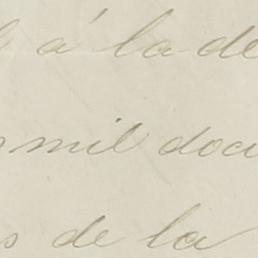 á la de
mil doci
s de la